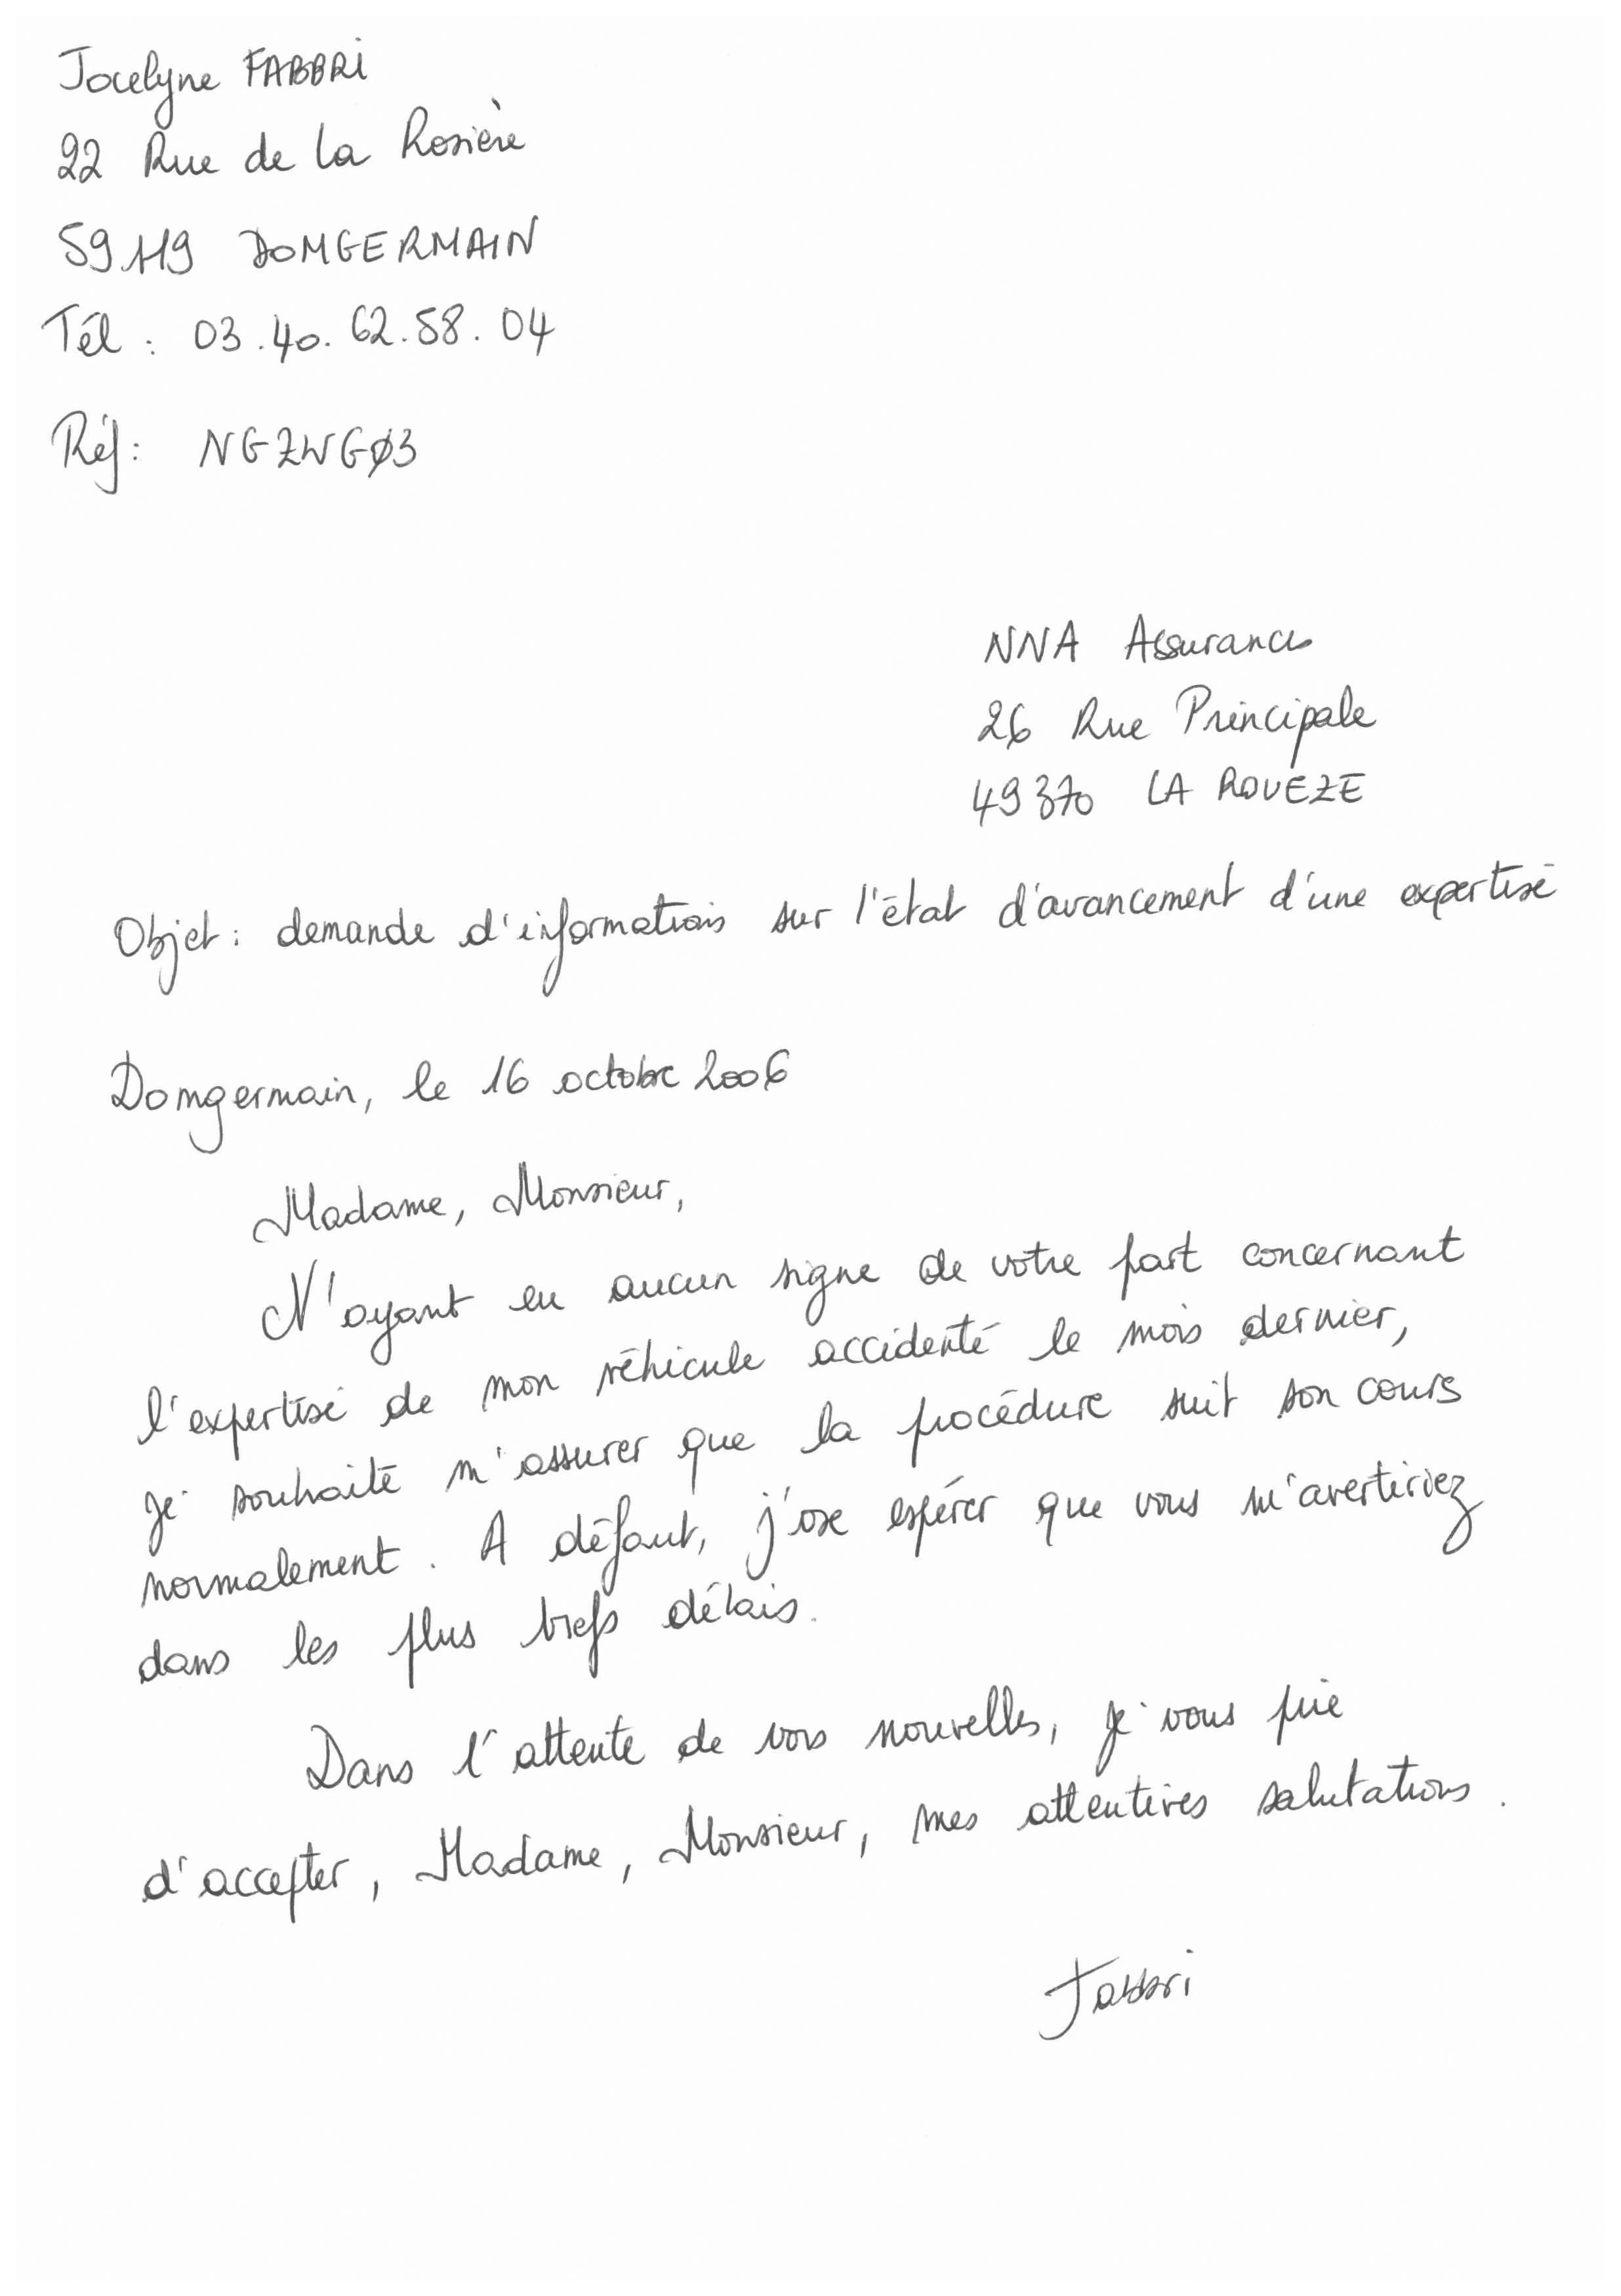 Jocelyne FABBRI
22 Rue de la Rosière
59119 DOMGERMAIN
Tél : 03.40.62.58.04
Réf : NGZWGØ3
NNA Assurances
26 Rue Principale
49370 LA ROUËZE
Objet : demande d'informations sur l'état d'avancement d'une expertise
Domgermain, le 16 octobre 2006
Madame, Monsieur,
N'ayant eu aucun signe de votre part concernant
l'expertise de mon véhicule accidenté le mois dernier,
je souhaite m'assurer que la procédure suit son cours
normalement. A défaut, j'ose espérer que vous m'avertiriez
dans les plus brefs délais.
Dans l'attente de vos nouvelles, je vous prie
d'accepter, Madame, Monsieur, mes attentives salutations.
Fabbri